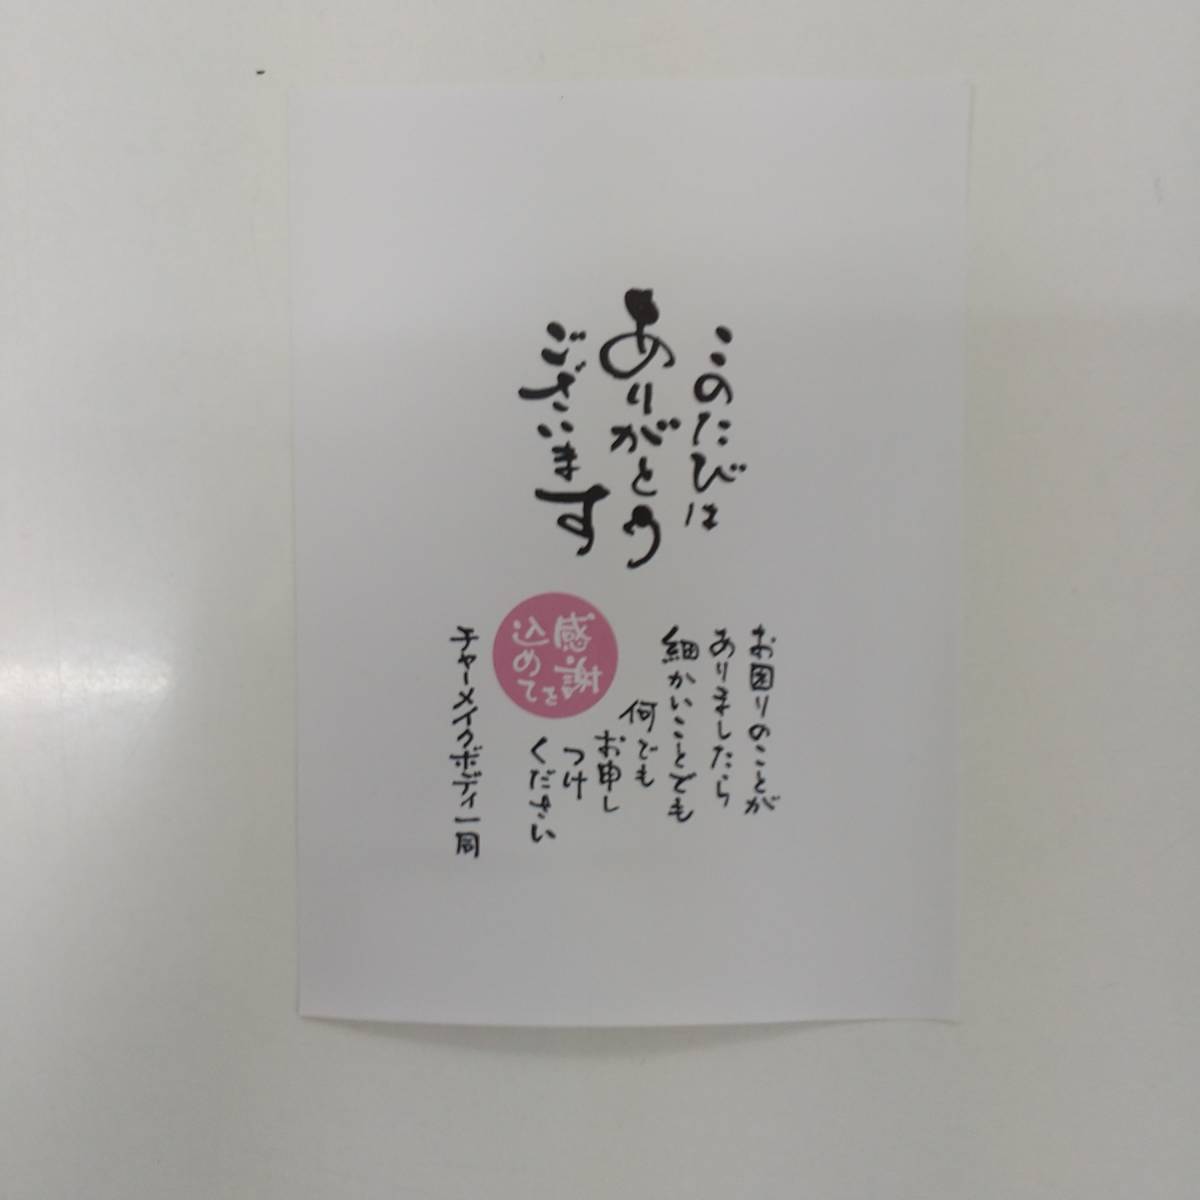 このたびは
ありがとう
ございます
お困りのことが
ありましたら
細かいことでも
何でも
お申し
つけ
ください
感謝を
込めて
チャーメイクボディ一同